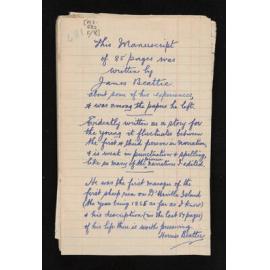 This Manuscript
of 85 pages was
written by
James Beattie
about some of his experiences,
& was among the papers he left.
Evidently written as a story for
the young it fluctuates between
the first & third person in narration,
& is weak in punctuation & spelling,
like so many of the narrations I edited.
He was the first manager of the
first sheep run on D'Urville Island
(the year being 1868 as far as I know)
& his description (on the last 57 pages)
of his life there is worth preserving.
Herries Beattie